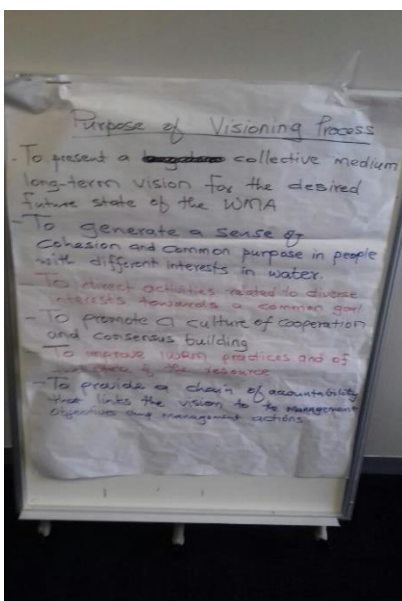 Purpose of Visioning Process
- To present a collective medium
long-term vision for the desired
future state of the WMA
- To generate a sense of
cohesion and common purpose in people
with different interests in water.
- To direct activities related to diverse
interests towards a common goal
- To promote a culture of cooperation
and consensus building
To improve IWRM practices and of
the resource
- To provide a chain of accountability
that links the vision to the management
objectives and management actions